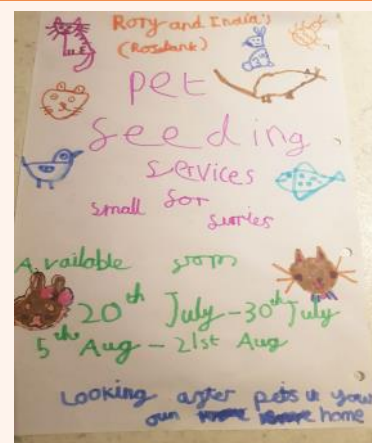 Rory and India's
(Rosbank)
pet
feeding
services
small for
furries
Available from
20th July - 30th July
5th Aug - 21st Aug
Looking after pets in your
own home